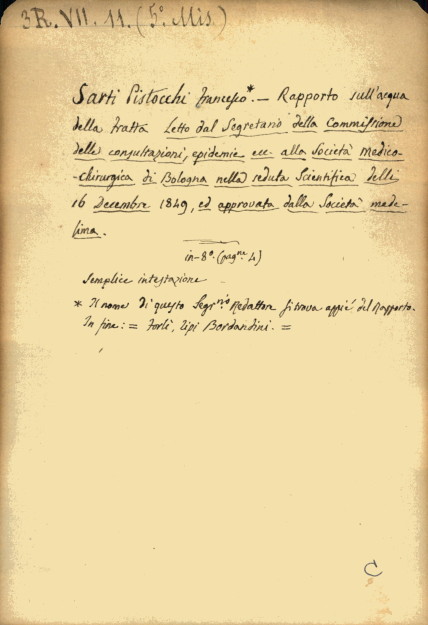 3R. VII. 11. (5° Mis.)
Sarti Pistocchi Francesco*. — Rapporto sull'acqua
della tratta Letto dal Segretario della Commissione
delle consultazioni, epidemie ecc. alla Società Medico-
-chirurgica di Bologna nella seduta Scientifica delli
16 Decembre 1849, ed approvata dalla Società mede-
sima.
in-8°. (pagne 4)
Semplice intestazione
* Il nome di questo Segrrio Redattore si trova appiè del Rapporto.
In fine: = Forlì, tipi Bordandini. =
C